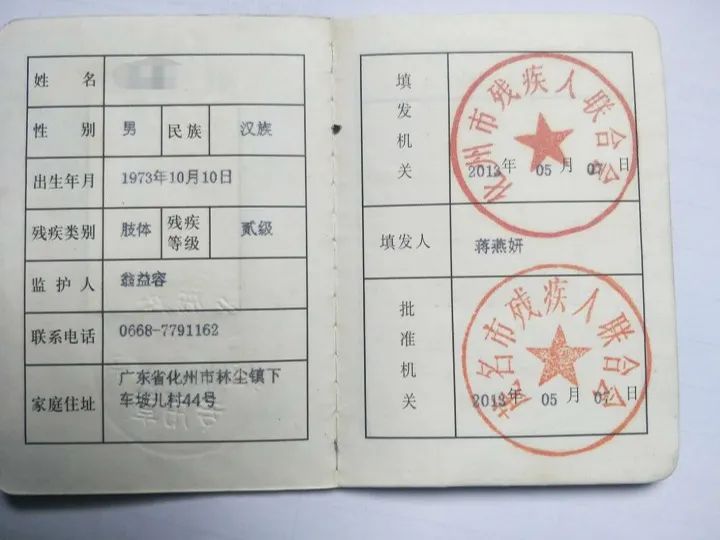 姓 名
性 别 男 民族 汉族
出生年月 1973年10月10日
残疾类别 肢体 残疾等级 贰级
监护人 翁益容
联系电话 0668-7791162
家庭住址 广东省化州市林尘镇下
车坡儿村44号
专用章
填发机关
化州市残疾人联合会
2013年 05 月 07 日
填发人 蒋燕妍
批准机关
茂名市残疾人联合会
2013年 05 月 07 日